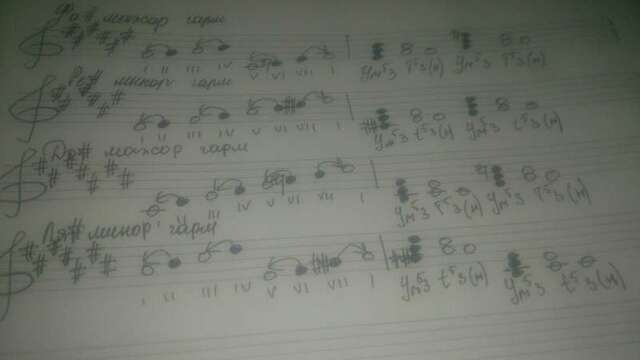 Фа# мажор гарм
I II III IV V VI VII I Ум⁵₃ Т⁵₃(н) Ум⁵₃ Т⁵₃(н)
Ре# минор гарм
I II III IV V VI VII I Ум⁵₃ t⁵₃(н) Ум⁵₃ t⁵₃(н)
До# мажор гарм
I II III IV V VI VII I Ум⁵₃ Т⁵₃(н) Ум⁵₃ Т⁵₃(н)
Ля# минор гарм
I II III IV V VI VII I Ум⁵₃ t⁵₃(н) Ум⁵₃ t⁵₃(н)